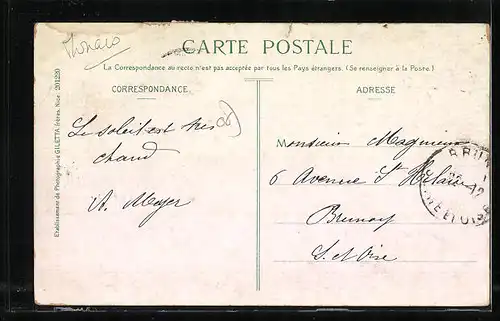 Monaco
CARTE POSTALE
La Correspondance au recto n'est pas acceptée par tous les Pays étrangers. (Se renseigner à la Poste.)
CORRESPONDANCE
Le soleil est très
chaud
A. Meyer
ADRESSE
Monsieur Magnien
6 Avenue St Hilaire
Brunoy
S. et Oise
BRUN
ET OISE
Etablissement de Photographie GILETTA frères, Nice 201220